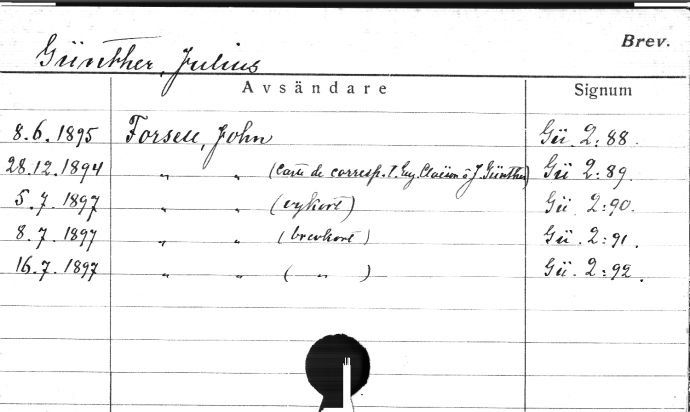 Brev.
Günther, Julius
Avsändare Signum
8.6.1895 Forsell, John Gü. 2:88.
28.12.1894 " " (Carte de corresp. t. Eug. Claëson o J. Günther) Gü 2:89.
5.7.1897 " " (vykort) Gü 2:90.
8.7.1897 " " (brevkort) Gü. 2:91.
16.7.1897 " " ( " ) Gü. 2:92.